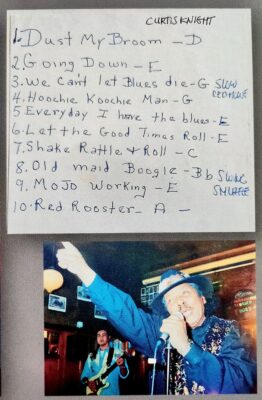 CURTIS KNIGHT
1. Dust My Broom - D
2. Going Down - E
3. We Can't let Blues die - G SLOW
4. Hoochie Koochie Man - G
5 Everyday I have the blues - E
6. Let the Good Times Roll - E
7. Shake Rattle & Roll - C
8. Old maid Boogie - Bb SWING
9. MoJo Working - E
10. Red Rooster - A -